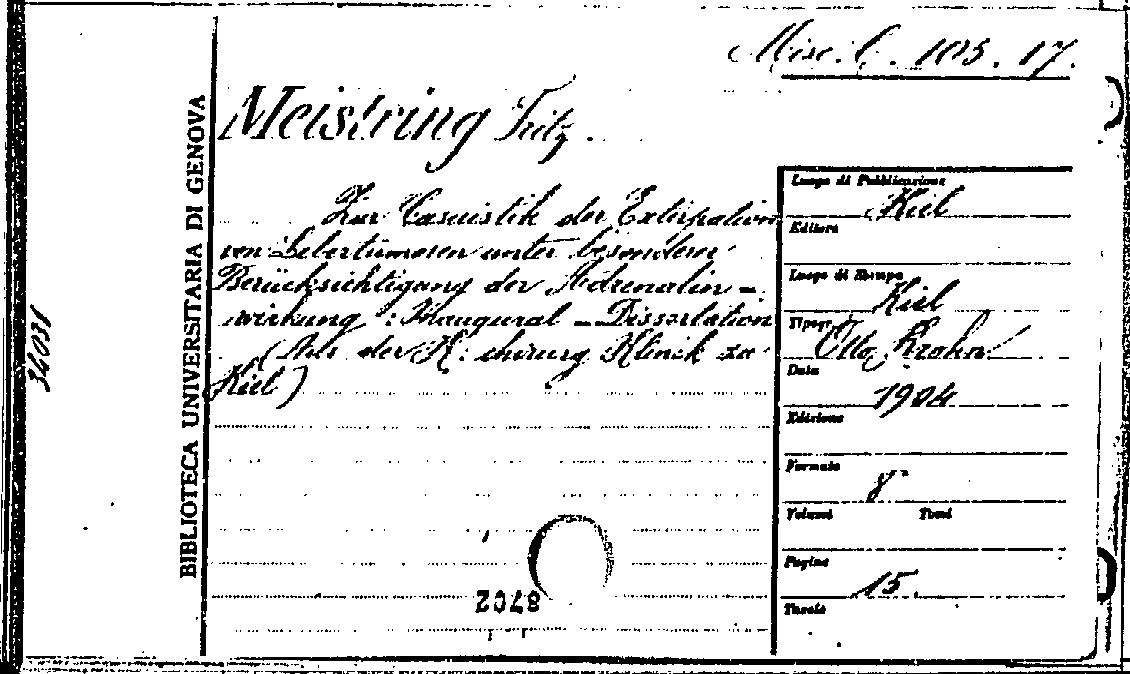 Misc. C. 105. 17.
Meistring Fritz.
Zur Casuistik der Extirpation
von Lebertumoren unter besonderer
Berücksichtigung der Adrenalin=
wirkung: Inaugural=Dissertation
(Aus der K. chirurg Klinik zu
Kiel)
BIBLIOTECA UNIVERSITARIA DI GENOVA
34031
Luogo di Pubblicazione
Kiel
Editore
Luogo di Stampa
Kiel
Tipogr.
Otto Krohn
Data
1904
Edizione
Formato
8°
Volumi Tomi
Pagine
15.
Tavole
8702